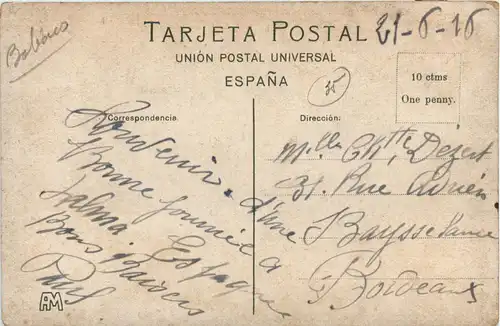 Babians
TARJETA POSTAL
21-6-16
UNIÓN POSTAL UNIVERSAL
ESPAÑA
35
10 ctms
One penny.
Correspondencia
Souvenir d'une
Bonne journée a
Palma Espagne
Bons Baisers
Paul
AM
Dirección:
Melle Chtte, Dézert
31. Rue Adrien
Bordeaux